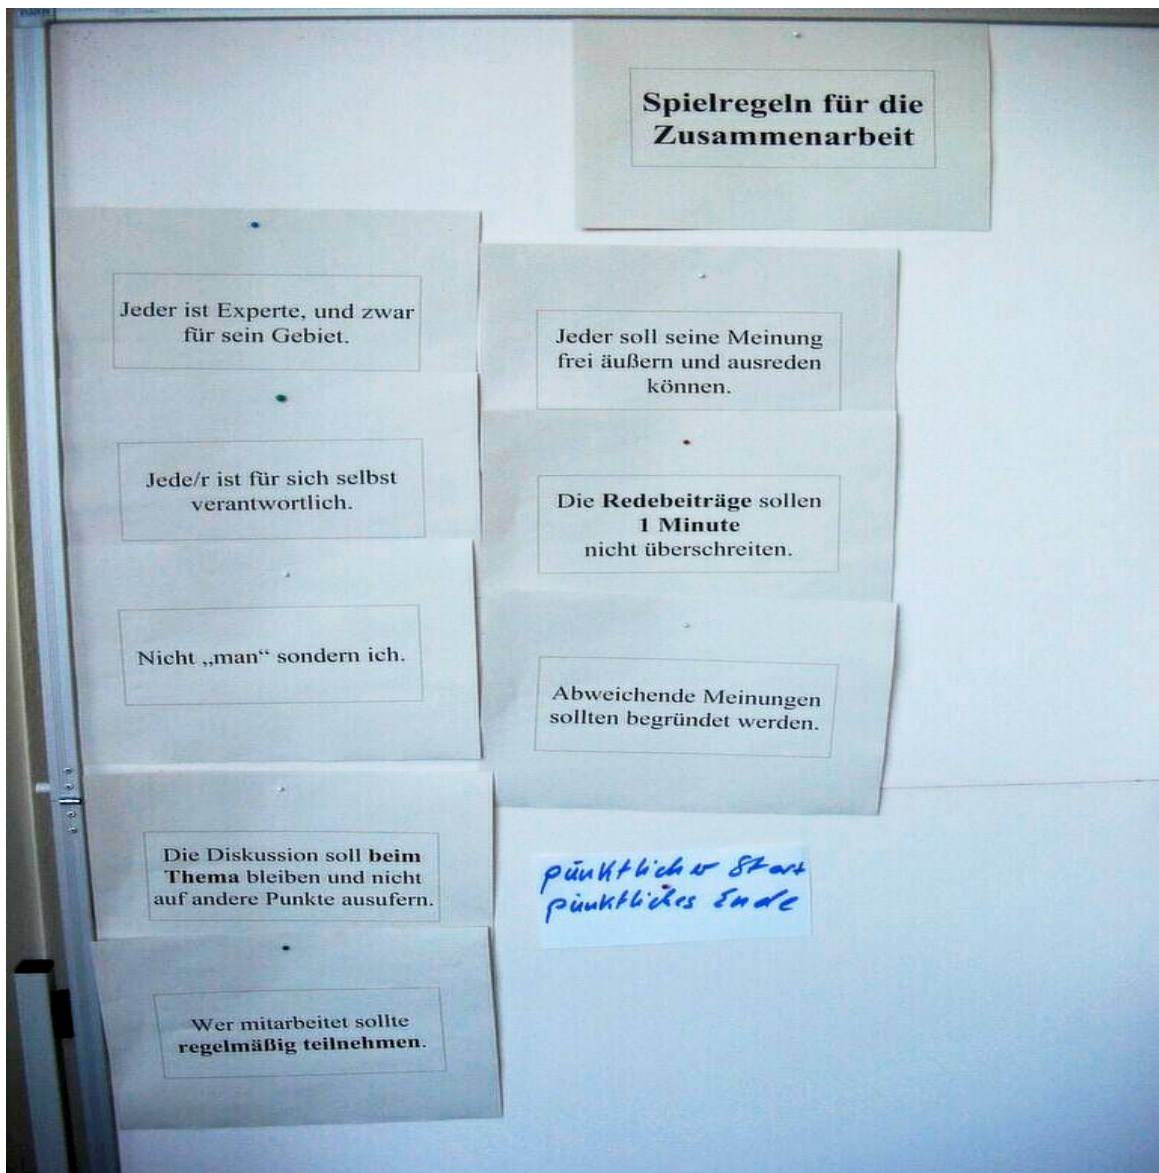 Spielregeln für die
Zusammenarbeit
Jeder ist Experte, und zwar
für sein Gebiet.
Jede/r ist für sich selbst
verantwortlich.
Nicht „man“ sondern ich.
Die Diskussion soll beim
Thema bleiben und nicht
auf andere Punkte ausufern.
Wer mitarbeitet sollte
regelmäßig teilnehmen.
Jeder soll seine Meinung
frei äußern und ausreden
können.
Die Redebeiträge sollen
1 Minute
nicht überschreiten.
Abweichende Meinungen
sollten begründet werden.
pünktlicher Start
pünktliches Ende